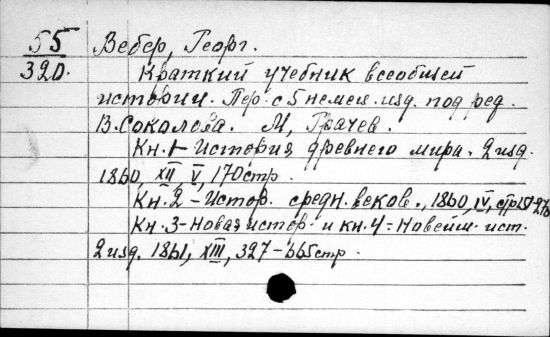 55 Вебер, Георг.
320. Краткий учебник всеобщей
истории. Пер. с 5 немец. изд. под ред.
В. Соколова. М, Грачев.
Кн. 1 - История древнего мира. 2 изд.
1860, XII V, 170 стр.
Кн. 2 - Истор. средн. веков., 1860, IV, стр 151-276
Кн. 3 - Новая истор. и кн. 4 = Новейш. ист.
2 изд. 1861, XIII, 327-665 стр.